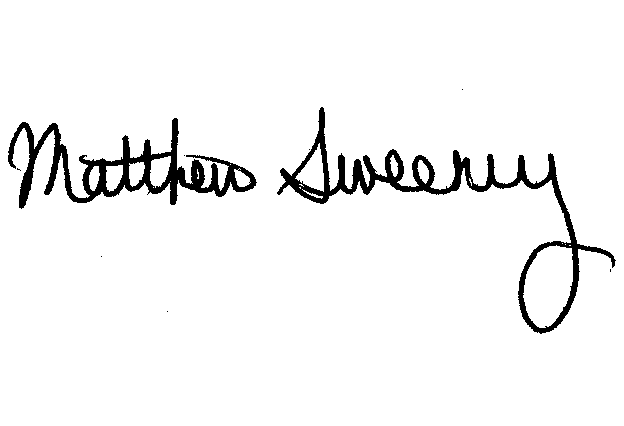 Matthew Sweeny